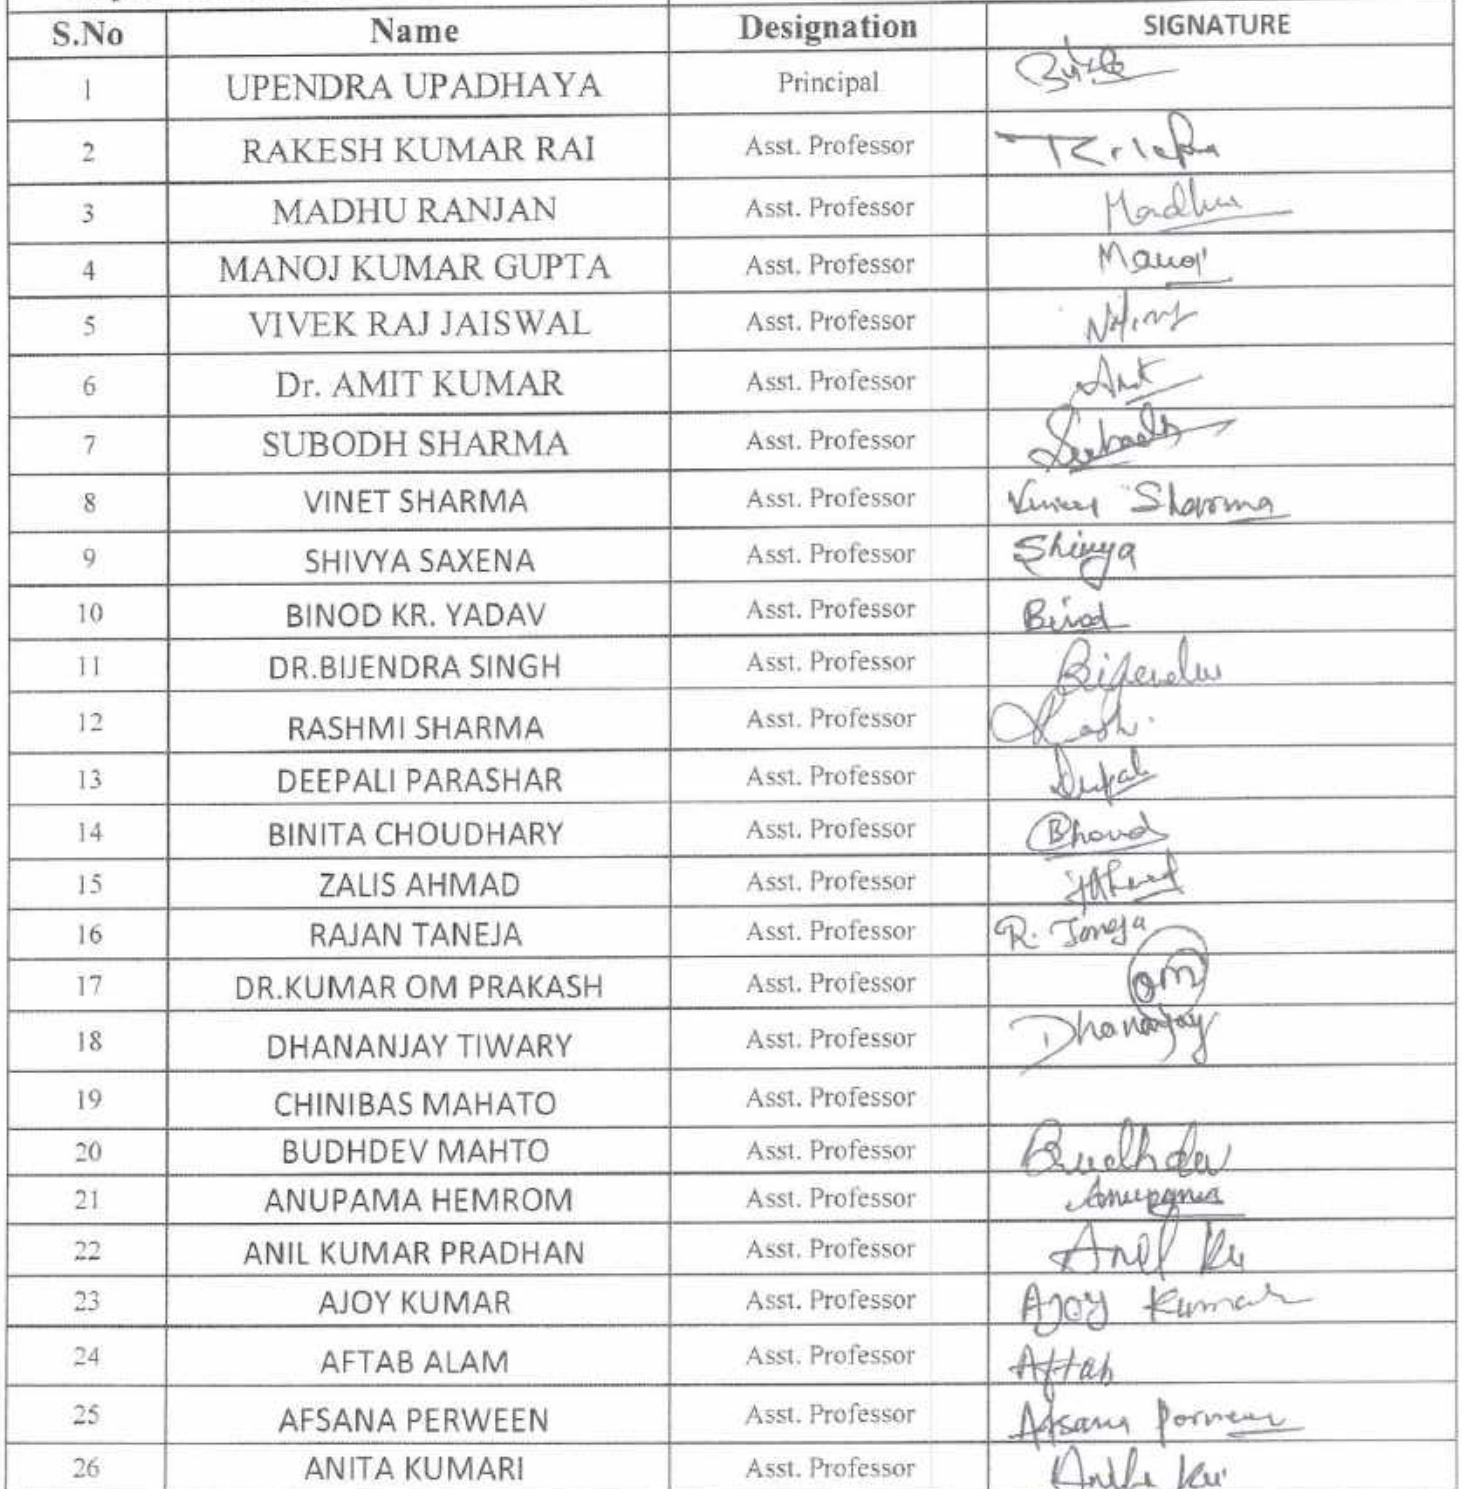 S.No Name Designation SIGNATURE
1 UPENDRA UPADHAYA Principal
2 RAKESH KUMAR RAI Asst. Professor
3 MADHU RANJAN Asst. Professor Madhu
4 MANOJ KUMAR GUPTA Asst. Professor Manoj
5 VIVEK RAJ JAISWAL Asst. Professor
6 Dr. AMIT KUMAR Asst. Professor
7 SUBODH SHARMA Asst. Professor Subodh
8 VINET SHARMA Asst. Professor Sharma
9 SHIVYA SAXENA Asst. Professor Shivya
10 BINOD KR. YADAV Asst. Professor Binod
11 DR.BIJENDRA SINGH Asst. Professor Bijendra
12 RASHMI SHARMA Asst. Professor
13 DEEPALI PARASHAR Asst. Professor
14 BINITA CHOUDHARY Asst. Professor
15 ZALIS AHMAD Asst. Professor
16 RAJAN TANEJA Asst. Professor R. Taneja
17 DR.KUMAR OM PRAKASH Asst. Professor om
18 DHANANJAY TIWARY Asst. Professor Dhananjay
19 CHINIBAS MAHATO Asst. Professor
20 BUDHDEV MAHTO Asst. Professor Budhdev
21 ANUPAMA HEMROM Asst. Professor Anupama
22 ANIL KUMAR PRADHAN Asst. Professor Anil Ku
23 AJOY KUMAR Asst. Professor Ajoy Kumar
24 AFTAB ALAM Asst. Professor Aftab
25 AFSANA PERWEEN Asst. Professor Afsana Perween
26 ANITA KUMARI Asst. Professor Anita Ku